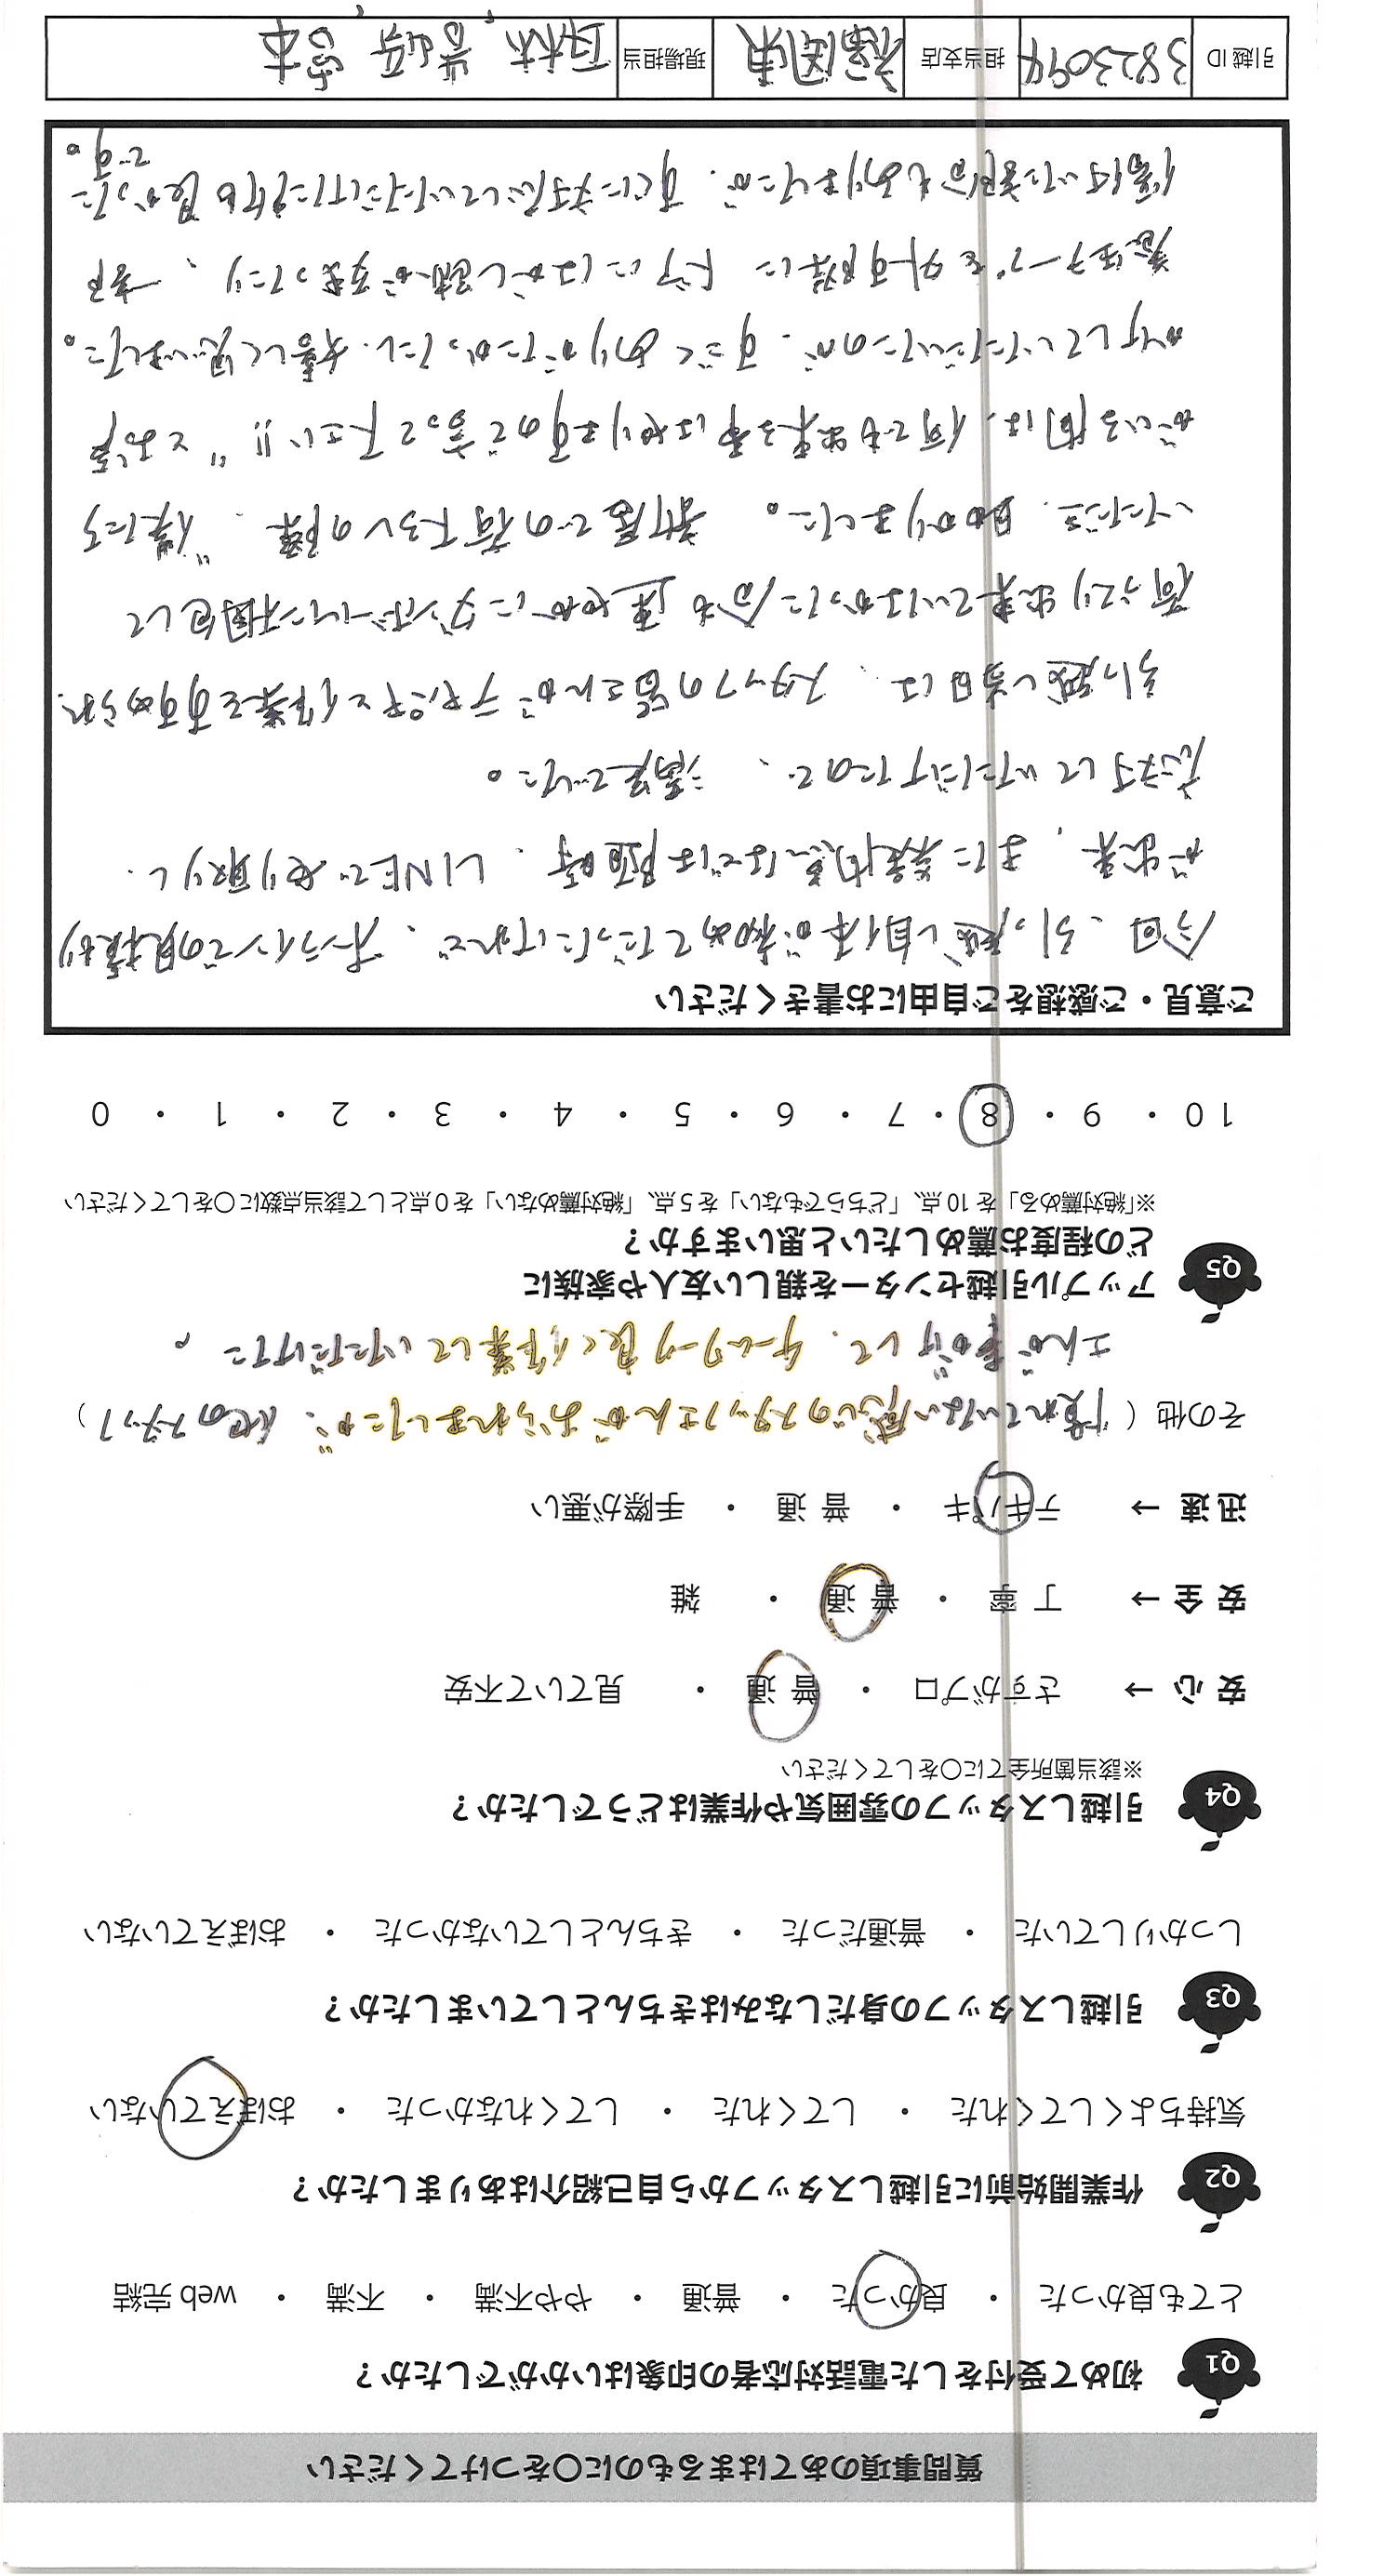 質問事項のあてはまるものに〇をつけてください
Q1 初めて受付をした電話対応者の印象はいかがでしたか？
とても良かった ・ 良かった ・ 普通 ・ やや不満 ・ 不満 ・ web 完結
Q2 作業開始前に引越しスタッフから自己紹介はありましたか？
気持ちよくしてくれた ・ してくれた ・ してくれなかった ・ おぼえていない
Q3 引越しスタッフの身だしなみはきちんとしていましたか？
しっかりしていた ・ 普通だった ・ きちんとしていなかった ・ おぼえていない
Q4 引越しスタッフの雰囲気や作業はどうでしたか？
※該当箇所全てに〇をしてください
安 心 → さすがプロ ・ 普 通 ・ 見ていて不安
安 全 → 丁 寧 ・ 普 通 ・ 雑
迅 速 → テキパキ ・ 普 通 ・ 手際が悪い
その他（慣れていない感じのスタッフさんがおられましたが、他のスタッフ）
さんが声かけして、チームワーク良く作業していただけた。
Q5 アップル引越センターを親しい友人や家族に
どの程度お薦めしたいと思いますか？
※「絶対薦める」を 10 点、「どちらでもない」を 5 点、「絶対薦めない」を 0 点として該当点数に〇をしてください
10 ・ 9 ・ 8 ・ 7 ・ 6 ・ 5 ・ 4 ・ 3 ・ 2 ・ 1 ・ 0
ご意見・ご感想をご自由にお書きください
今回、引っ越し自体が初めてだったけれど、オンラインでの見積り
が出来、また疑問点などは随時、LINEでやり取りし、
応対していただけたので、満足でした。
引っ越し当日は、スタッフの皆さんがテキパキと作業をすすめられ、
荷づくり出来ていなかった分も速やかにダンボールイン梱包して
いただき、助かりました。 新居での荷下ろしの際、"僕たち
がいる間は、何でも出来る事はやりますので言って下さい!!" とお声
がけしていただいたのが、すごくありがたかったし、嬉しく思いました。
養生テープを外す際に ドアにはがし跡が残まったり、一部
傷付いた部分もありましたが、すぐに対応していただけた所も良かった
です。
引越 ID 3823094 担当支店 福岡東 現場担当 西林、岩崎、宮本